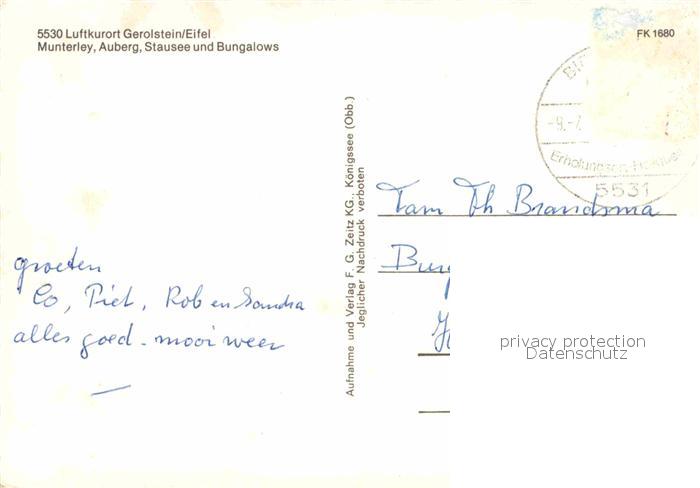 5530 Luftkurort Gerolstein/Eifel
Munterley, Auberg, Stausee und Bungalows
FK 1680
-9.-7
5531
Aufnahme und Verlag F. G. Zeitz KG., Königssee (Obb.)
Jeglicher Nachdruck verboten
Fam Th Brandsma
groeten
Co, Piet, Rob en Sandra
alles goed - mooi weer
privacy protection
Datenschutz